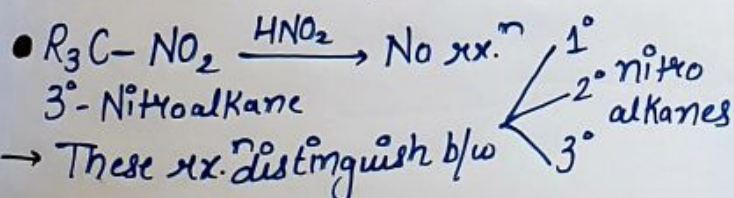 • R₃C–NO₂ —HNO₂→ No rx.ⁿ
3°-Nitroalkane
→ These rx.ⁿ distinguish b/w
1°
2° nitro
alkanes
3°